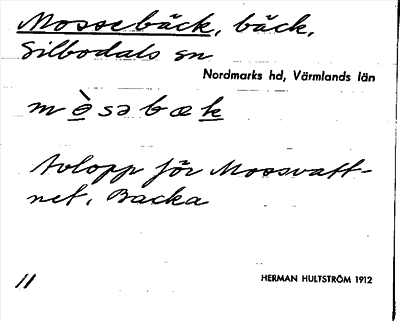 Mossebäck, bäck,
Silbodals sn
Nordmarks hd, Värmlands län
mɵ̀səbæk
Avlopp för Moosvatt-
net, Backa
11
HERMAN HULTSTRÖM 1912